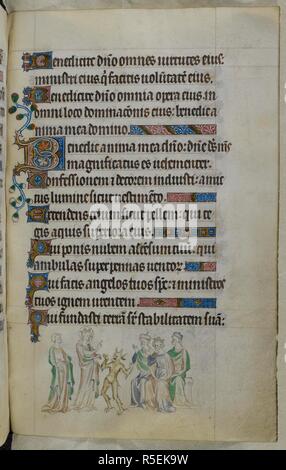 Benedicite dño omnes uirtutes eius:
ministri eius q̃ facitis uolūtatē eius.
Benedicite dño omnia opera eius: in
omni loco dominac̃onis eius: benedic a
nima mea domino.
Benedic anima mea dño: dñe dš mš
magnificatus es uehementer.
Confessionem ⁊ decorem induisti: amic
tus lumine sicut uestimēto.
Extendens celum sicut pellem: qui te
gis aquis superiora eius.
Qui ponis nubem ascēsum tuū: qui
ambulas super pennas uentorū.
Qui facis angelos tuos spc̃: ⁊ ministros
tuos ignem urentem.
Qui fundasti terrā sr̃ stabilitatem suā:
alamy
Image ID: R5EK9W
www.alamy.com